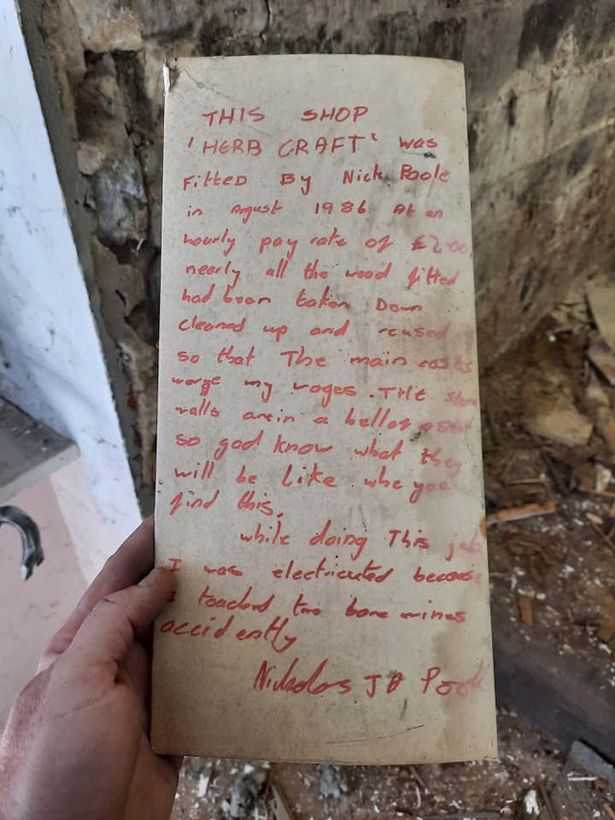 THIS SHOP
'HERB CRAFT' was
Fitted By Nick Poole
in August 1986 At an
hourly pay rate of £2.00
nearly all the wood fitted
had been taken Down
cleaned up and reused
so that The main costs
my wages. THE stone
walls are in a
so god know what they
will be like whe you
find this.
while doing This job
I was electricuted because
I touched two bare wires
accidently
Nickolas J P Poole